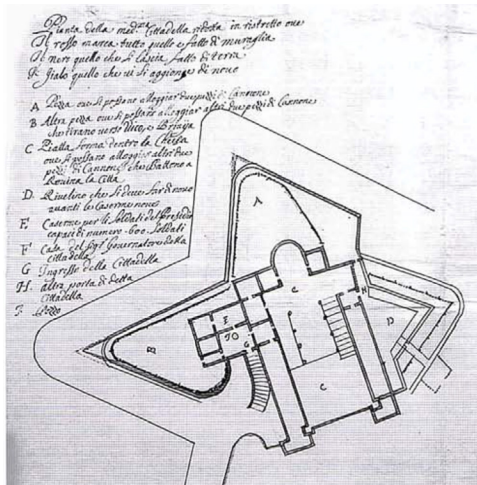 Pianta della med.ma Cittadella ridotta in ristretto ove
Il rosso marca tutto quello e fatto di muraglia
Il nero quello che si lascia fatto di terra
Il Gialo quello che vi si aggionge di novo
A Pezza ove si possano alloggiar due pezzi di Cannone
B Altra pezza ove si possano alloggiar altri due pezzi di Cannone
che tirano verso
C Piatta forma dentro la Chiesa
ove si possano alloggiar altri due
pezzi di Cannone che battono a
Rovina la Città
D. Rivelino che si deve far di novo
avanti le Caserme nove
E Caserme per li Soldati del Presidio
capaci di numero 600 Soldati
F Casa del Sig.r Governatore della
Cittadella
G Ingresso della Cittadella
H. altra porta di detta
Cittadella
J. Pozzo
A
C
H
D
F
JO
G
B
C